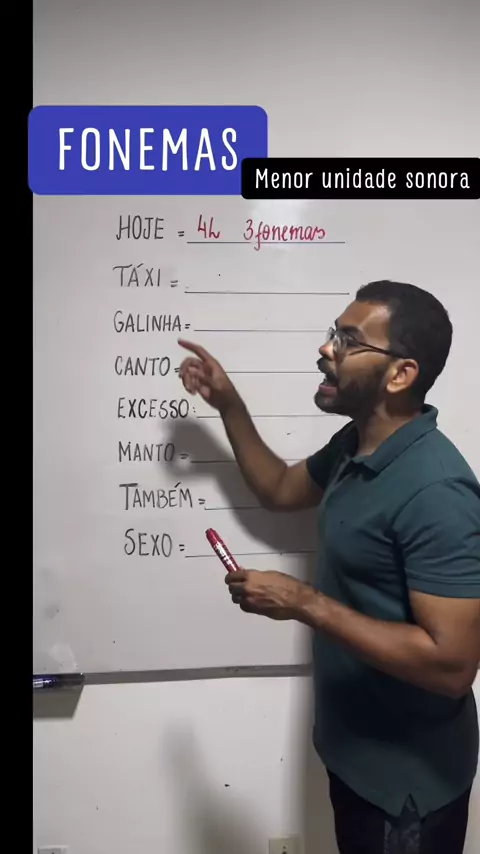 FONEMAS
Menor unidade sonora
HOJE = 4L 3 fonemas
TÁXI =
GALINHA =
CANTO =
EXCESSO :
MANTO =
TAMBÉM =
SEXO =